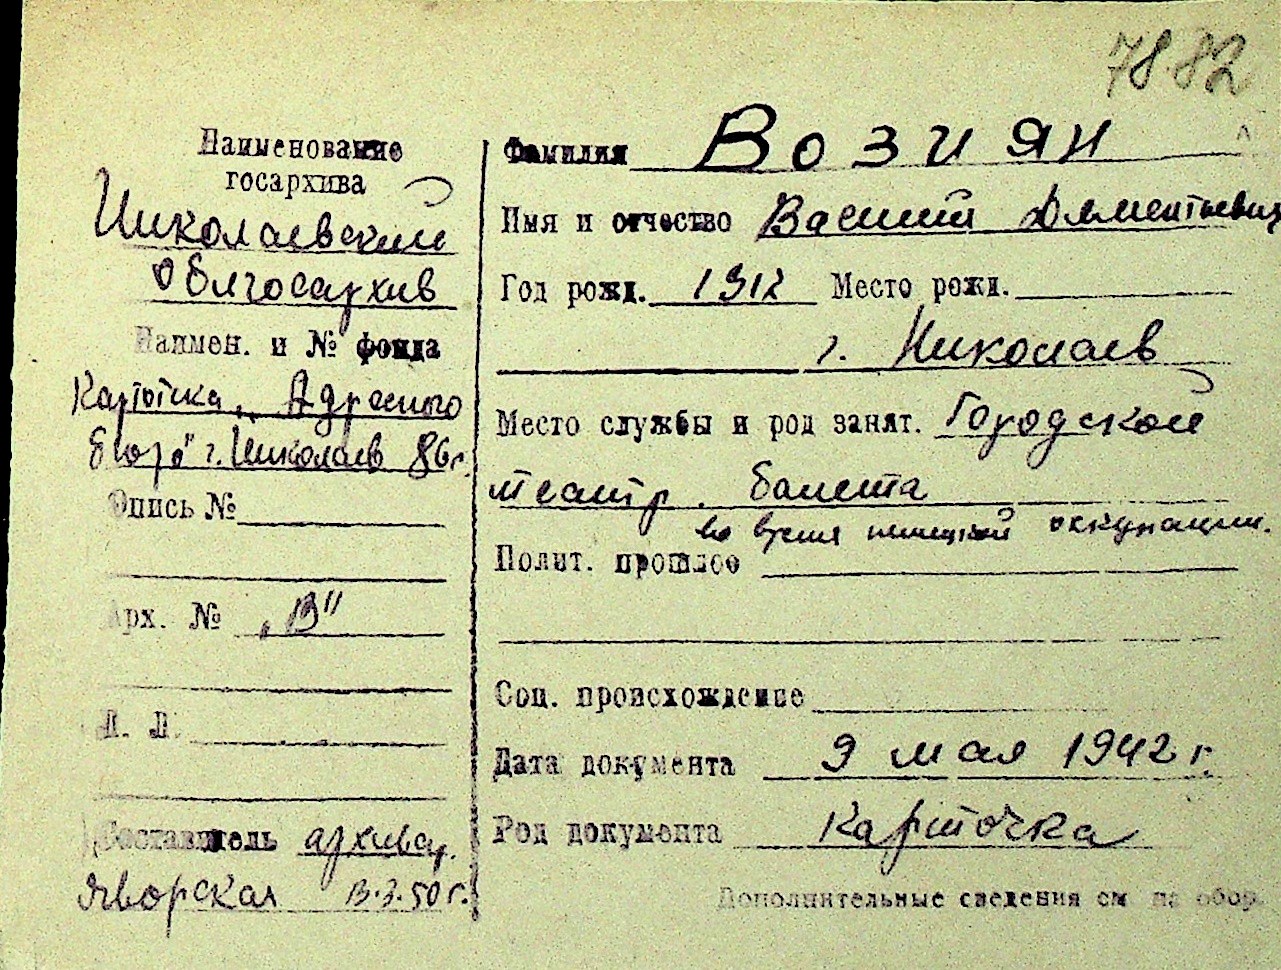 78.82
Наименование
госархива
Николаевский
Облгосархив
Наимен. и № фонда
Картотека „Адресного
бюро" г. Николаев 86г.
Опись №
Арх. № „В"
Л. Л.
Составитель архивар.
Яворская
Фамилия Возиян
Имя и отчество Василий Дементьевич
Год рожд. 1912 Место рожд.
г. Николаев
Место службы и род занят. Городской
театр. балета
во время немецкой оккупации.
Полит. прошлое
Соц. происхождение
Дата документа 9 мая 1942 г.
Род документа Карточка
Дополнительные сведения см на обор.